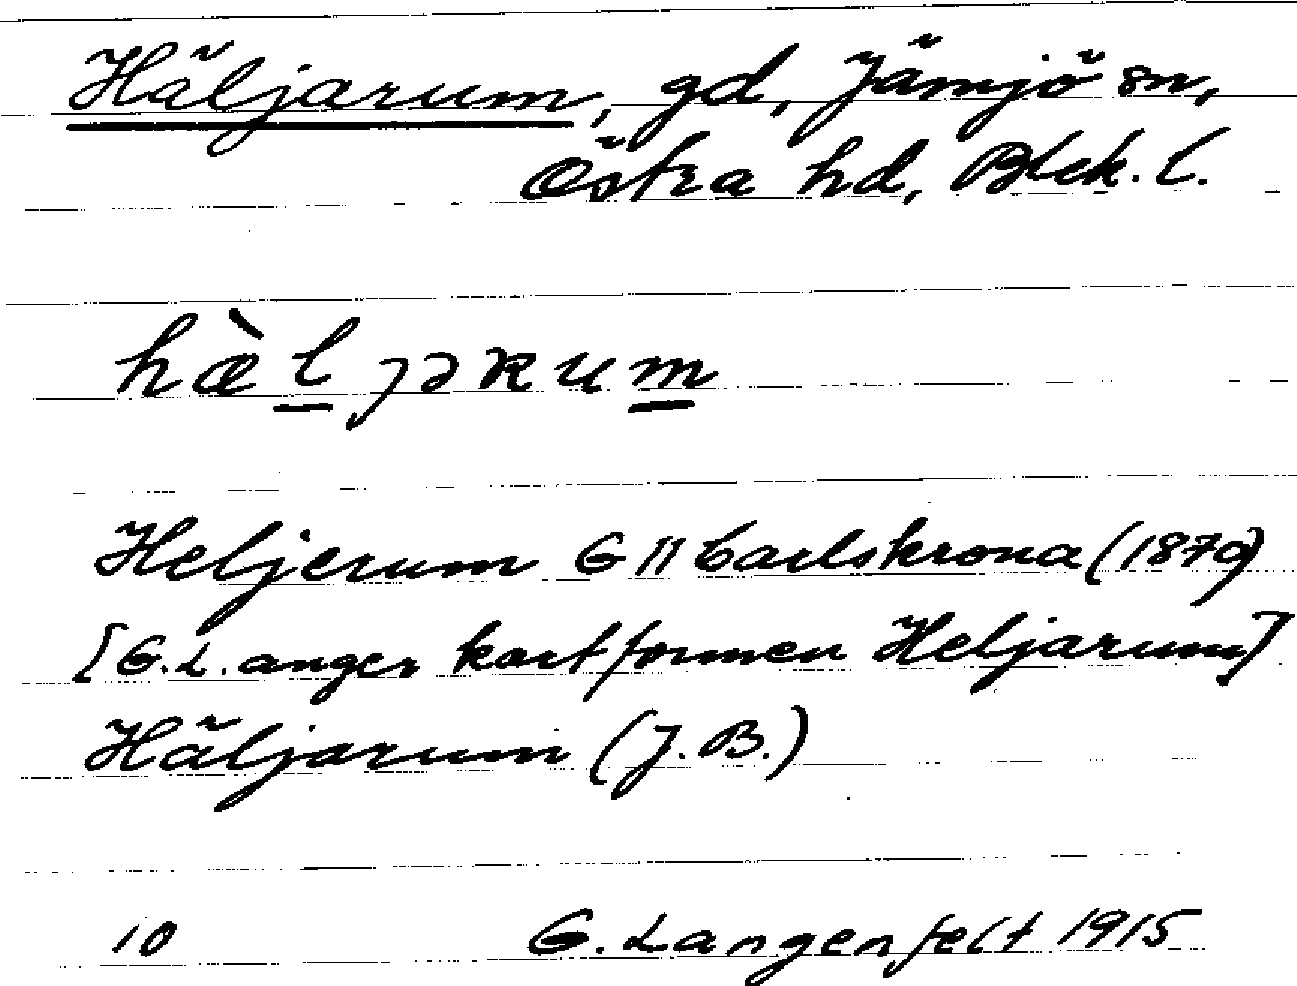 Häljarum, gd, Jämjö sn,
Östra hd, Blek. l.
hæ̀l̲jəʀum̲
Heljerum G 11 Carlskrona (1879)
[G.L. anger kartformen Heljarum]
Häljarum (J.B.)
10 G. Langenfelt 1915